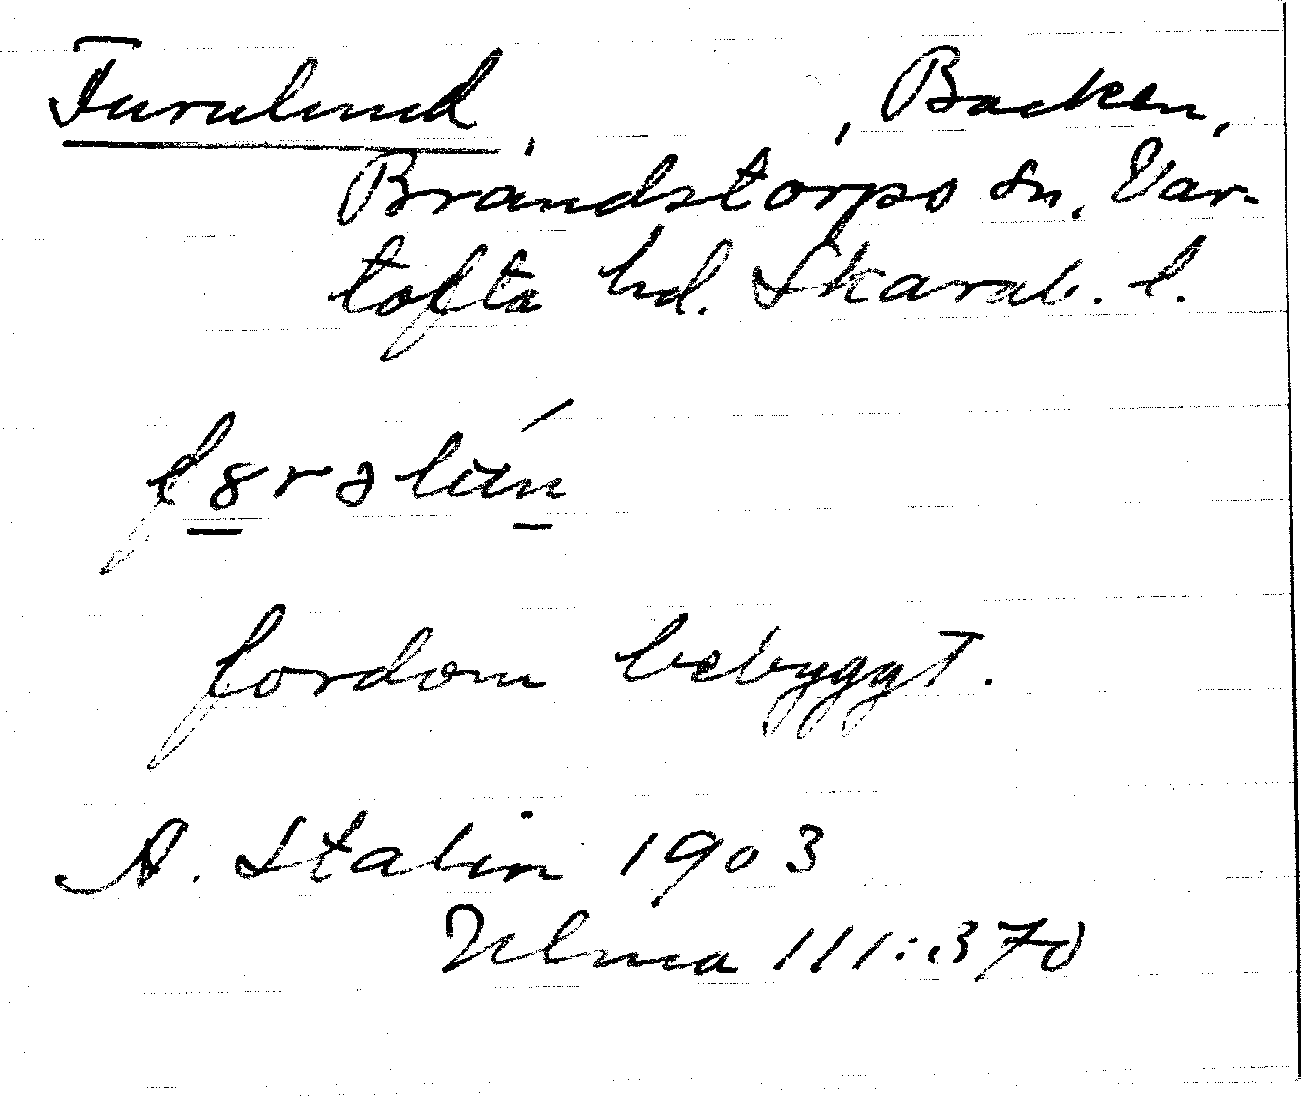 Furulund, , Backen,
Brandstorps sn, Var-
tofta hd. Skarab. l.
fordom bebyggt.
A. Stalin 1903
Ulma 111:370